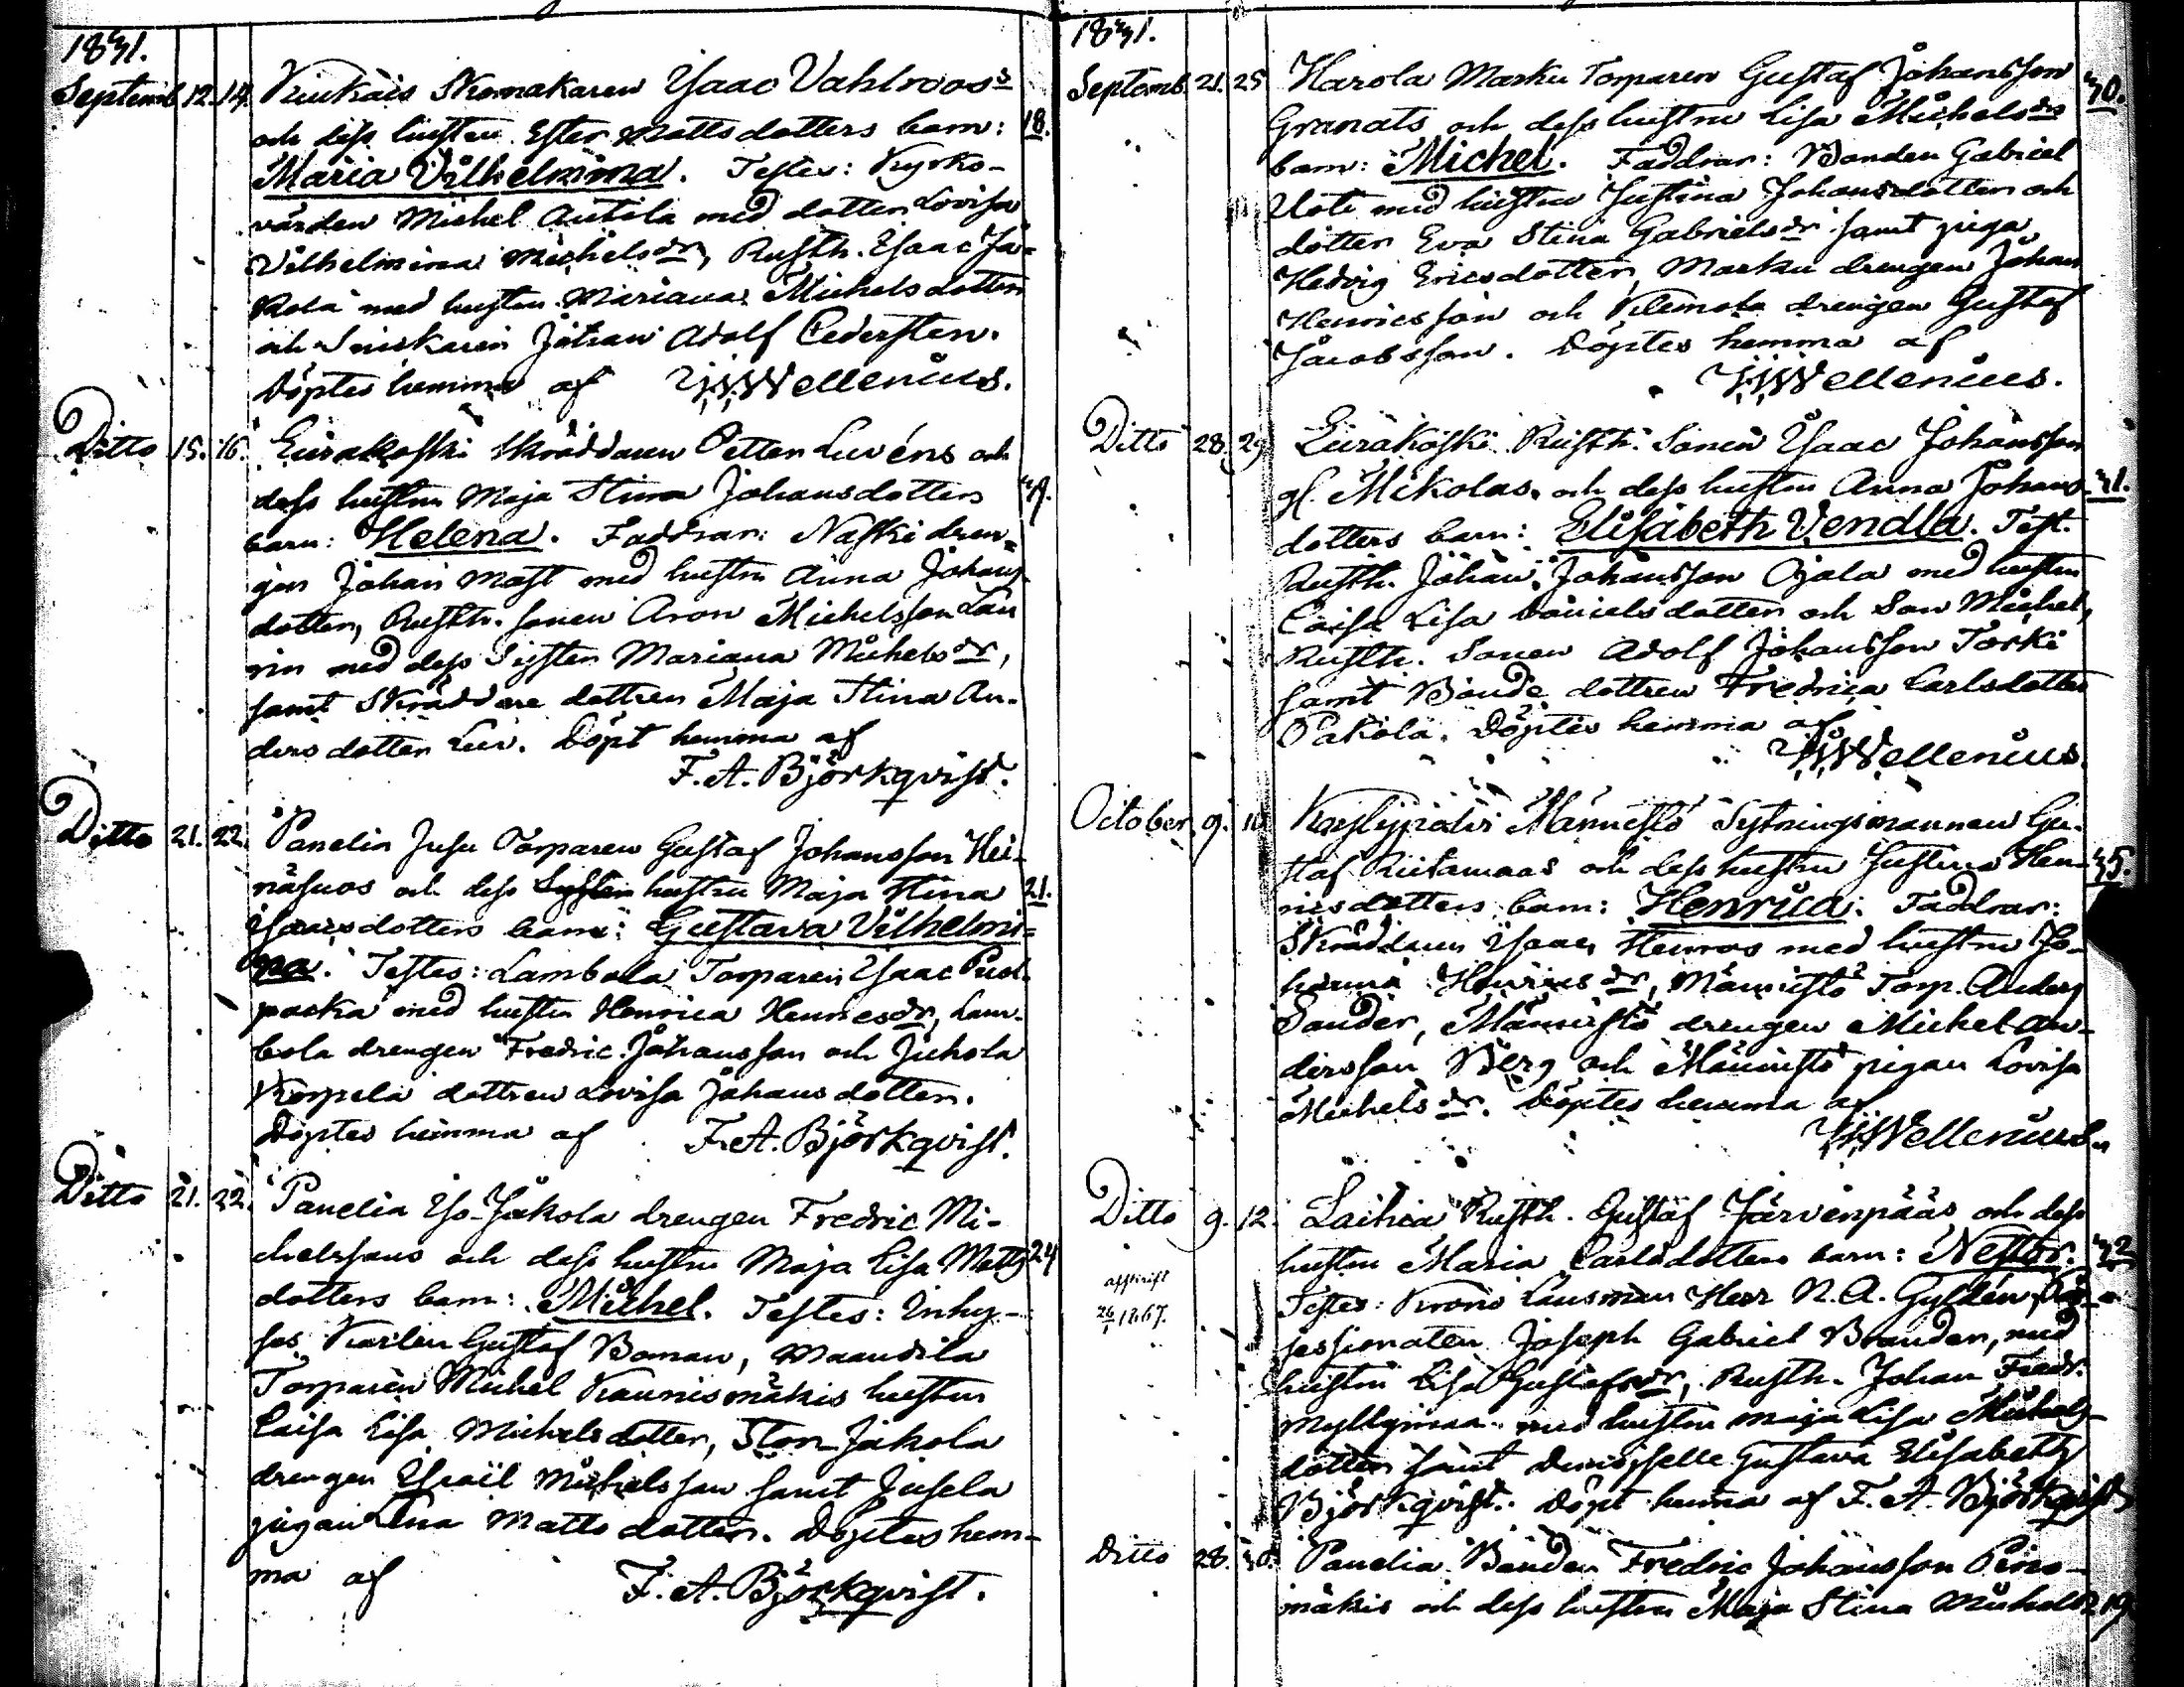 1831.
Septemb. 12. 14. Kiukais Skomakaren Isaac Vahlroos's
och dess hustru Ester Mattsdotters barn: 18.
Maria Vilhelmina. Testes: Kyrko-
värden Michel Anttila med dotter Lovisa
Vilhelmina Michelsdr, Rusth. Isaac Ja-
kola med hustru Mariana Michelsdotter
och Snickaren Johan Adolf Cedersten.
Döptes hemma af Wellenius.
Ditto 15. 16. Eurakoski Skräddaren Petter Luréns och
dess hustru Maja Stina Johansdotters
barn: Helena. Faddrar: Naski dren-
gen Johan Mast med hustru Anna Johans-
dotter, Rusth. sonen Aron Michelsson Lau
rin med dess Syster Mariana Michelsdr,
samt Skräddare dottren Maja Stina An-
dersdotter Lur. Döpt hemma af
F. A. Björkqvist.
Ditto 21. 22. Panelia Jusu Torparen Gustaf Johansson Hei-
näsuos och dess hustru Maja Stina 21.
Isaacsdotters barn: Gustava Vilhelmi-
na. Testes: Lambola Torparen Isaac
med hustru Henrica Henricsdr, Lam-
bola drengen Fredric Johansson och Juhola
Korpela dottren Lovisa Johansdotter.
Döptes hemma af F. A. Björkqvist.
Ditto 21. 22. Panelia Iso-Jakola drengen Fredric Mi-
chelssons och dess hustru Maja Lisa Matts 24
dotters barn: Michel. Testes: Inhy-
ses Karlen Gustaf Boman, Maandila
Torparen Michel Kaunismäkis hustru
Caisa Lisa Michelsdotter, Stor-Jakola
drengen Israël Michelsson samt Jusela
pigan Lisa Mattsdotter. Döptes hem-
ma af F. A. Björkqvist.
1831.
Septemb. 21. 25 Harola Marku Torparen Gustaf Johansson 30.
Granats och dess hustru Lisa Michelsdrs
barn: Michel. Faddrar: Bonden Gabriel
Uoti med hustru Justina Johansdotter och
dotter Eva Stina Gabrielsdr samt piga
Hedvig Ericsdotter, Marku drengen Johan
Henricsson och Klemola drengen Gustaf
Jacobsson. Döptes hemma af
Wellenius.
Ditto 28. 29 Eurakoski Rusth. Sonen Isaac Johansson
gl. Mikolas, och dess hustru Anna Johans- 31.
dotters barn: Elisabeth Vendla. Test.
Rusth. Johan Johansson Ojala med hustru
Caisa Lisa Danielsdotter och Son Michel,
Rusth. Sonen Adolf Johansson Torki
samt Bonde dottren Fredrica Carlsdotter
Pakola. Döptes hemma af
Wellenius.
October 9. 10. Männistö Sytningsmannen Gu-
staf Riitamaas och dess hustru Justina Hen- 35.
ricsdotters barn: Henrica. Faddrar:
Skräddaren Isaac Henroos med hustru Jo-
hanna Henricsdr, Männistö Torp. Anders
Sander, Männistö drengen Michel An-
dersson Berg och Männistö pigan Lovisa
Michelsdr. Döptes hemma af
Wellenius.
Ditto 9. 12. Laihia Rusth. Gustaf Järvenpääs och dess
hustru Maria Carlsdotters barn: Nestor. 32
afskrift
1867.
Testes: Krono Länsman Herr N. A. Gyldén,
sessionaten Joseph Gabriel Brander, med
hustru Lisa Gustafsdr, Rusth. Johan Fredr.
Myllymaa med hustru Maja Lisa Michels-
dotter samt Demoiselle Gustava Elisabeth
Björkqvist. Döpt hemma af F. A. Björkqvist
Ditto 28. 30. Panelia Bonden Fredric Johansson
mäkis och dess hustru Maja Stina Michels 19